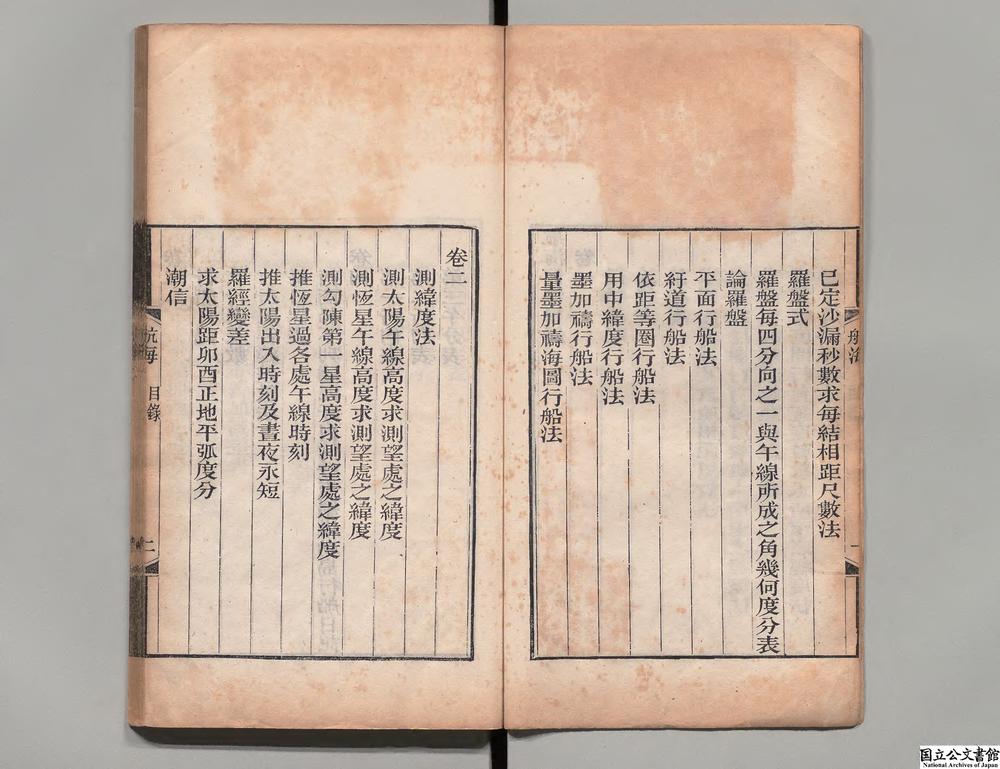 已定沙漏秒數求每結相距尺數法
羅盤式
羅盤每四分向之一與午線所成之角幾何度分表
論羅盤
平面行船法
紆道行船法
依距等圈行船法
用中緯度行船法
墨加禱行船法
量墨加禱海圖行船法
卷二
測緯度法
測太陽午線高度求測望處之緯度
測恆星午線高度求測望處之緯度
測勾陳第一星高度求測望處之緯度
推恆星過各處午線時刻
推太陽出入時刻及晝夜永短
羅經變差
求太陽距卯酉正地平弧度分
潮信
航海
目錄
二
国立公文書館
National Archives of Japan